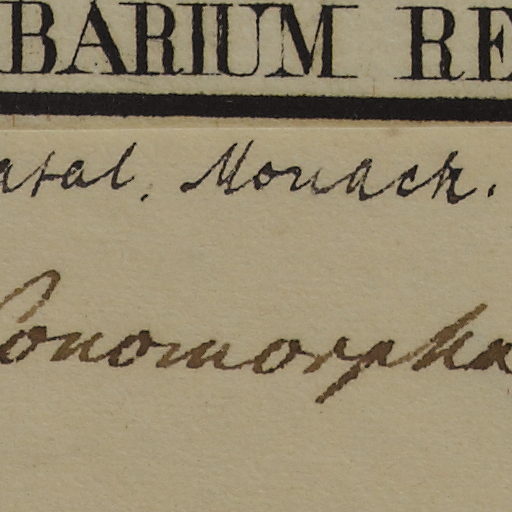 BARIUM RE
atal. Monach.
Conomorpha